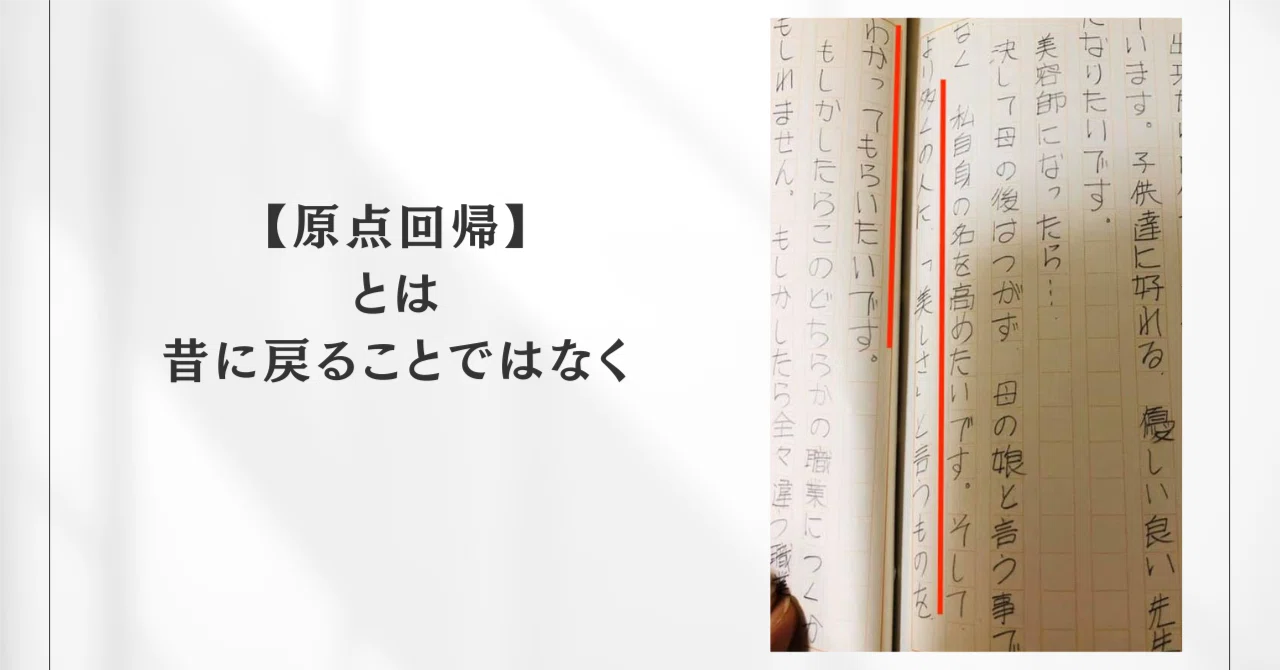 【原点回帰】
とは
昔に戻ることではなく
います。子供達に好れる 優しい良い 先生
になりたいです。
美容師になったら…
決して母の後はつがず 母の娘と言う事で
なく 私自身の名を高めたいです。そして
より多くの人に 「美しさ」と言うものを
わかってもらいたいです。
もしかしたらこのどちらかの職業につくか
もしれません。 もしかしたら全々違う職